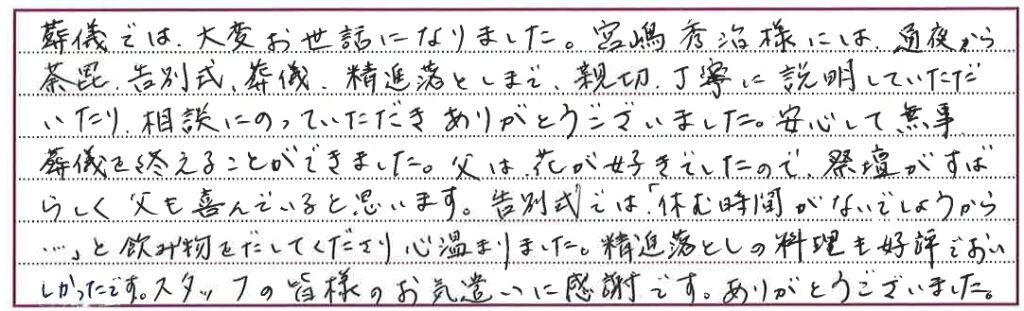 葬儀では、大変お世話になりました。宮嶋秀治様には、通夜から
荼毘、告別式、葬儀、精進落としまで、親切、丁寧に説明していただ
いたり、相談にのっていただきありがとうございました。安心して無事、
葬儀を終えることができました。父は、花が好きでしたので、祭壇がすば
らしく父も喜んでいると思います。告別式では、「休む時間がないでしょうから
…」と飲み物をだしてくださり心温まりました。精進落としの料理も好評でおい
しかったです。スタッフの皆様のお気遣いに感謝です。ありがとうございました。